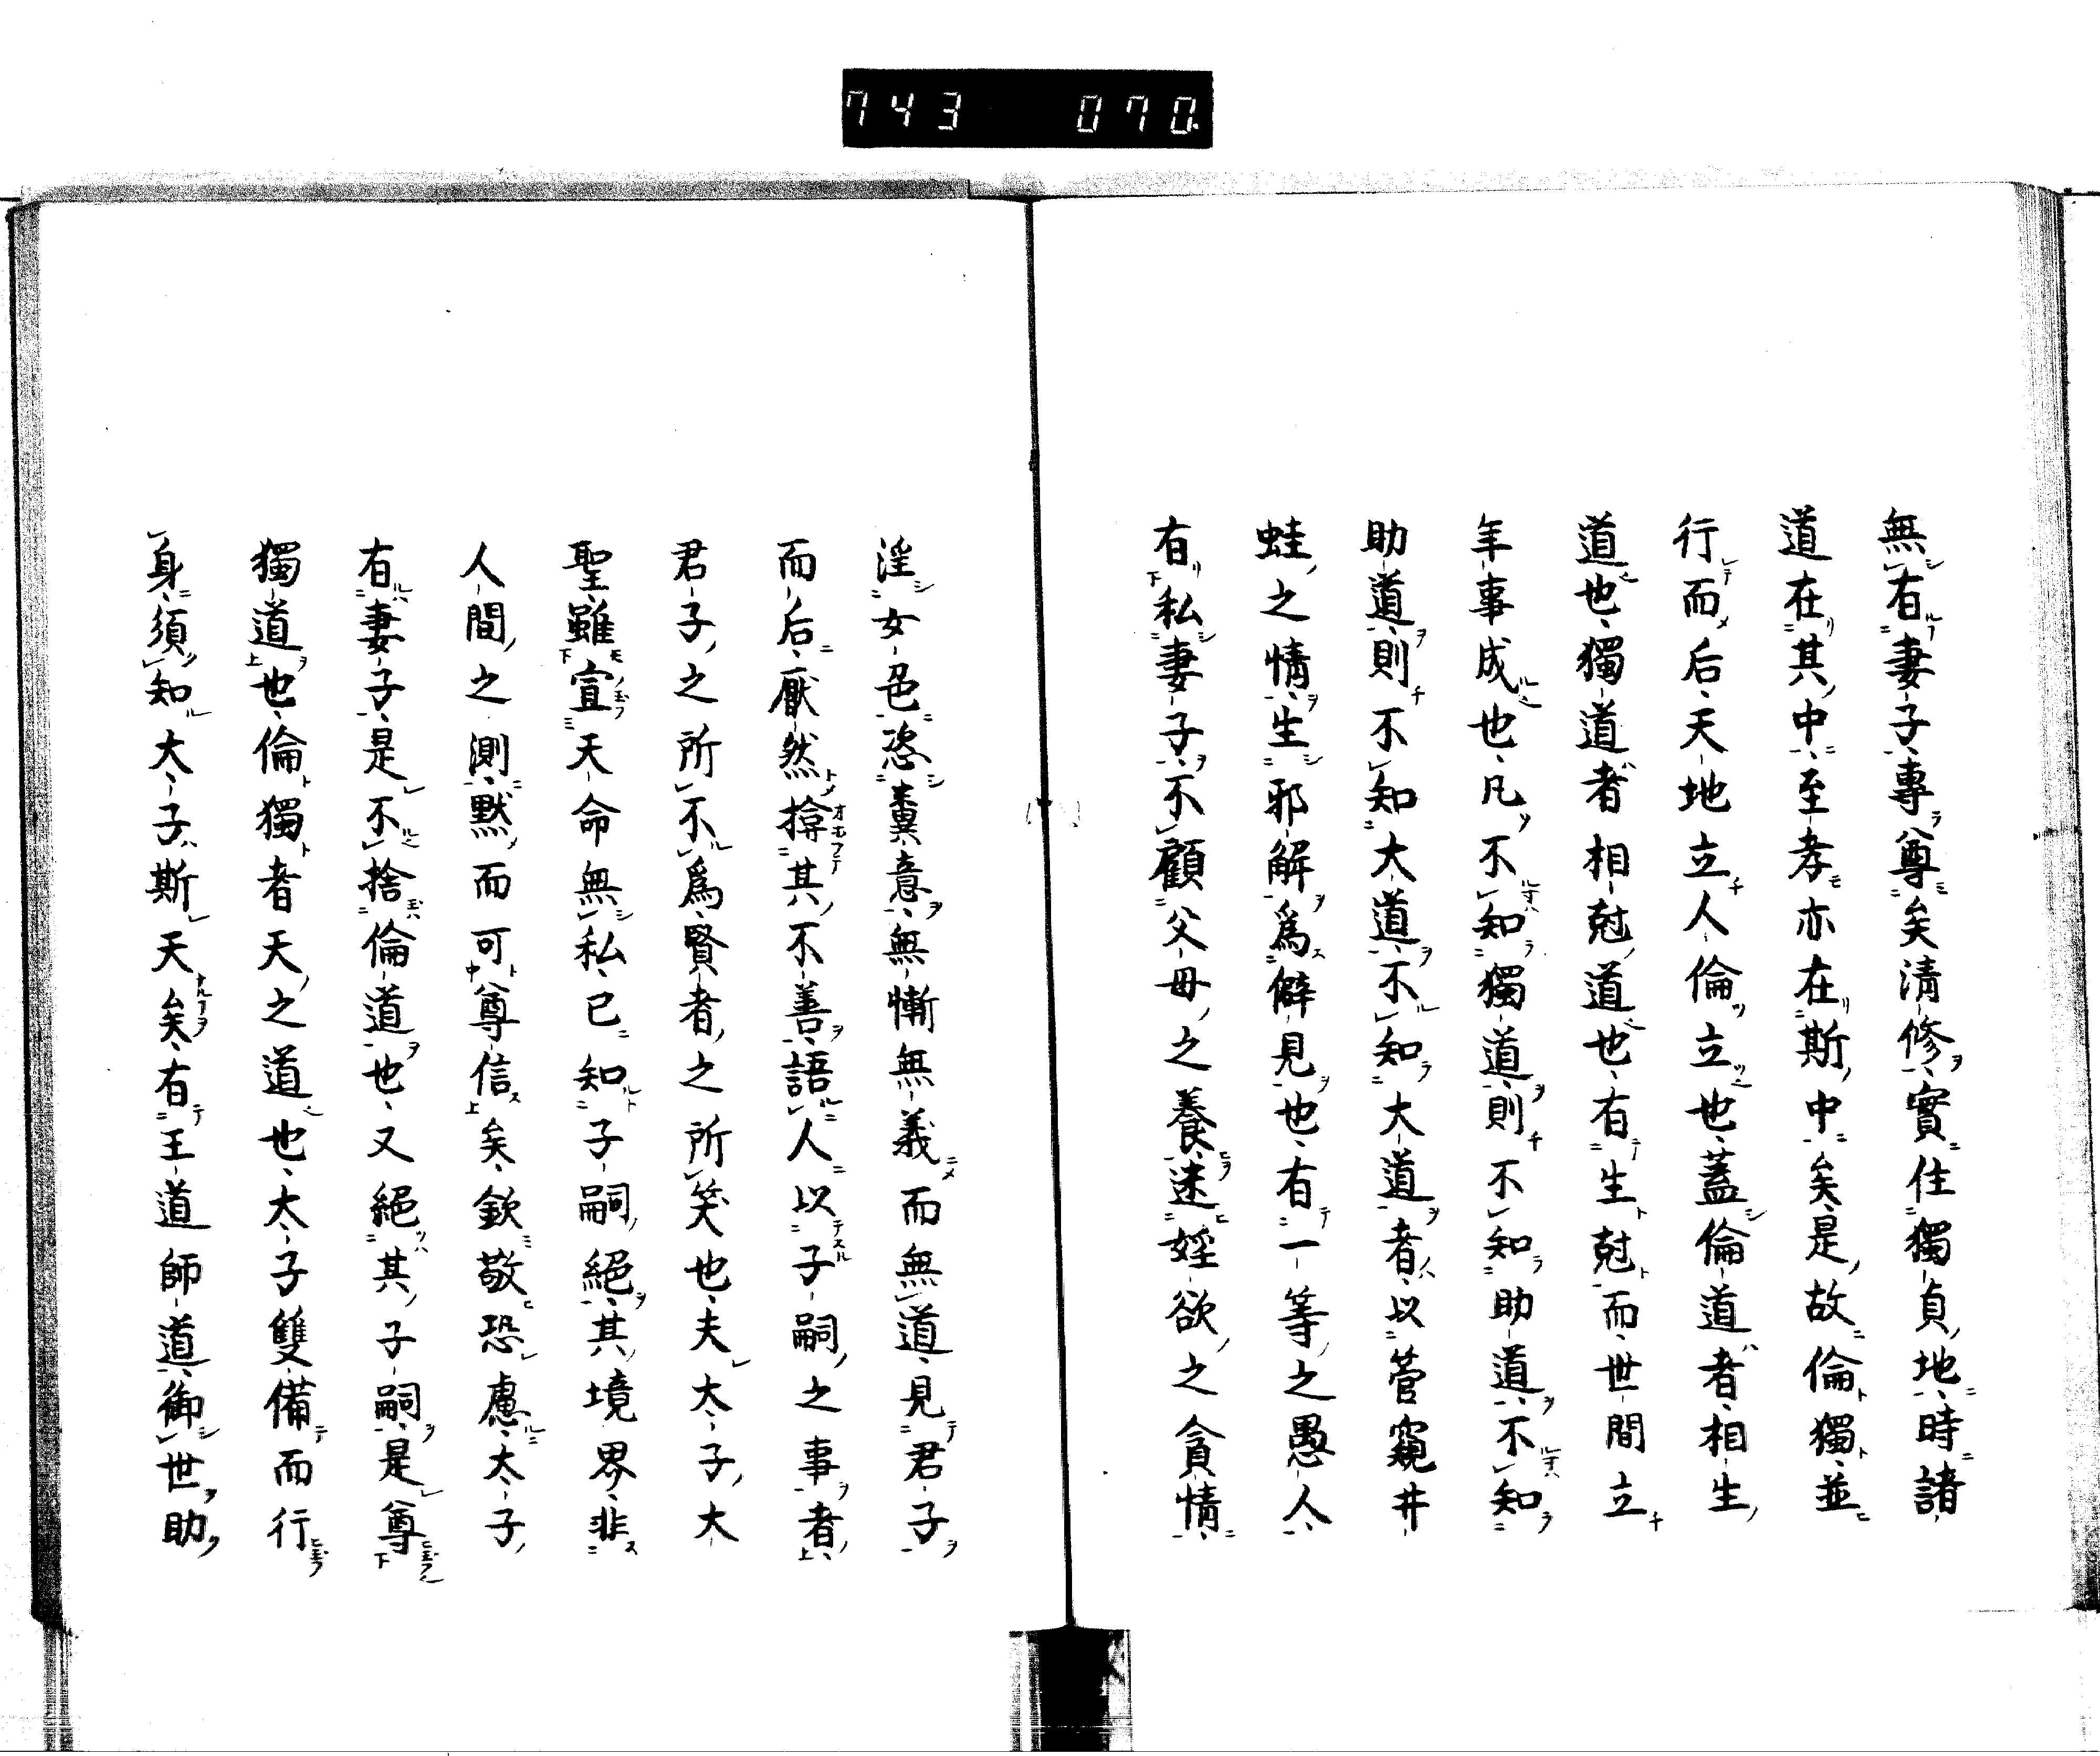 743 070
無有妻子專尊矣清修實住獨貞地時諸
道在其中至孝亦在斯中矣是故倫獨並
行而后天地立人倫立也蓋倫道者相生
道也獨道者相尅道也有生尅而世間立
年事成也凡不知獨道則不知助道不知
助道則不知大道不知大道者以菅窺井
蛙之情生邪解爲僻見也有一等之愚人
有私妻子不顧父母之養迷婬欲之貪情
淫女色恣糞意無慚無義而無道見君子
而后厭然揜其不善語人以子嗣之事者
君子之所不爲賢者之所笑也夫大子大
聖雖宣天命無私已知子嗣絕其境界非
人間之測默而可尊信矣欽敬恐慮太子
有妻子是不捨倫道也又絕其子嗣是尊
獨道也倫獨者天之道也太子雙備而行
身須知大子斯天矣有王道師道御世助